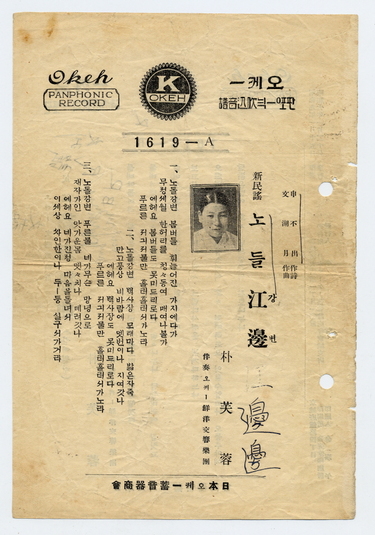 Okeh
PANPHONIC
RECORD
K
OKEH
오케ー
1619-A
新民謠
노들江邊
강변
申不出 作詩
文湖月 作曲
朴芙蓉
伴奏 오케ー鮮洋交響樂團
一、노들강변 봄버들 휘늘어진 가지에다가
무정세월 한허리를 칭칭동여 매여나볼가
에헤요 봄버들도 못미드리로다
푸르른 저긔저물만 흘러흘러서가노라
二、노들강변 백사장 모래마다 밟은자죽
만고풍상 비바람에 몃번이나 지여갓나
에헤요 백사장도 못미드리로다
푸르른 저긔저물만 흘러흘러서가노라
三、노들강변 푸른물 네가무슨 망녕으로
재자가인 앗가운몸 몃몃치나 데려갓나
에헤요 네가진정 마음을돌녀서
이세상 싸인한이나 두ー둥 실구서가거라
邊
邊
日本오케ー蓄音器商會